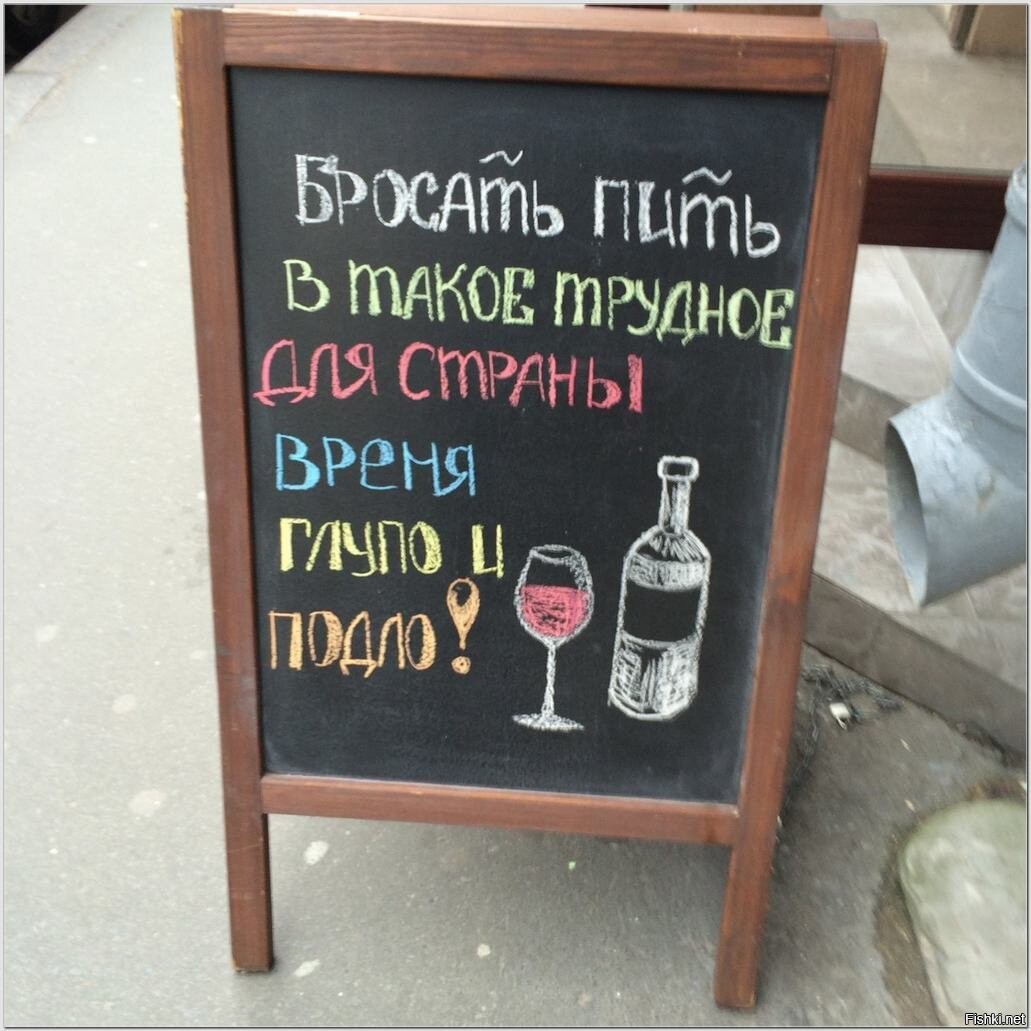 БРОСАТЬ ПИТЬ
В ТАКОЕ ТРУДНОЕ
ДЛЯ СТРАНЫ
ВРЕМЯ
ГЛУПО И
ПОДЛО!
Fishki.net